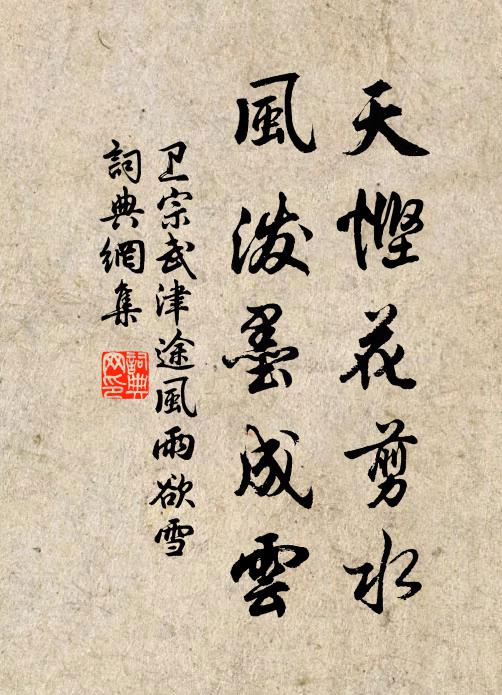 天慳花剪水
風潑墨成雲
卫宗武津途風雨欲雪
詞典網集
詞典網印